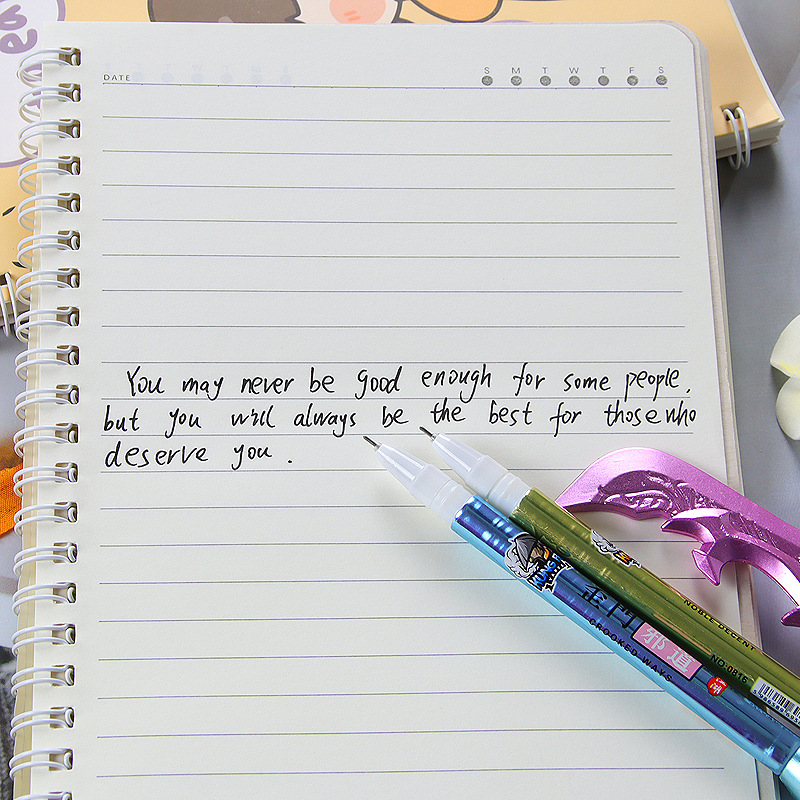 DATE
S M T W T F S
You may never be good enough for some people,
but you will always be the best for those who
deserve you .
KUNG FU
歪門
邪道
CROOKED WAYS
NOBLE DECENT
NO:0816